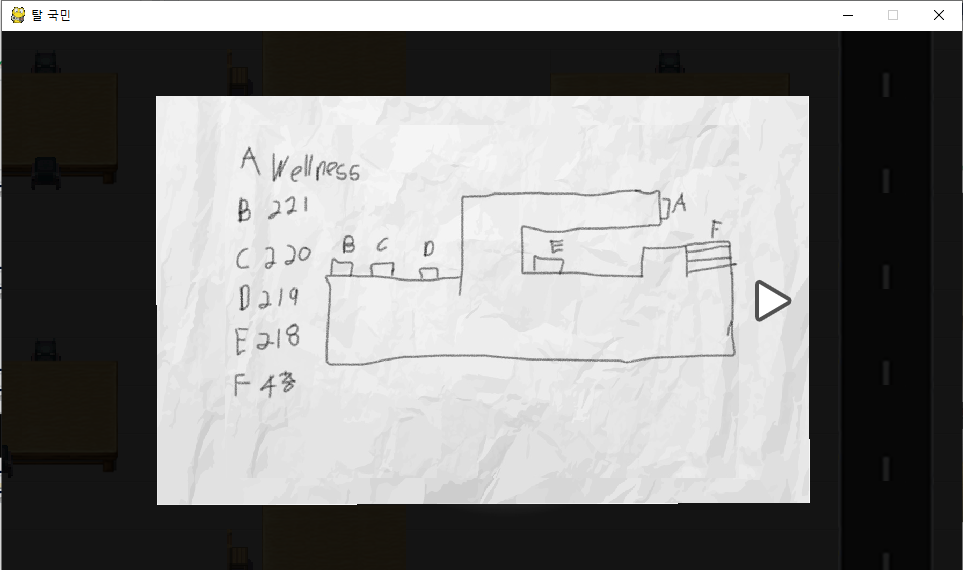 탈 국민
A Wellness
B 221
C 220
D 219
E 218
F 4층
B C D
E
A
F